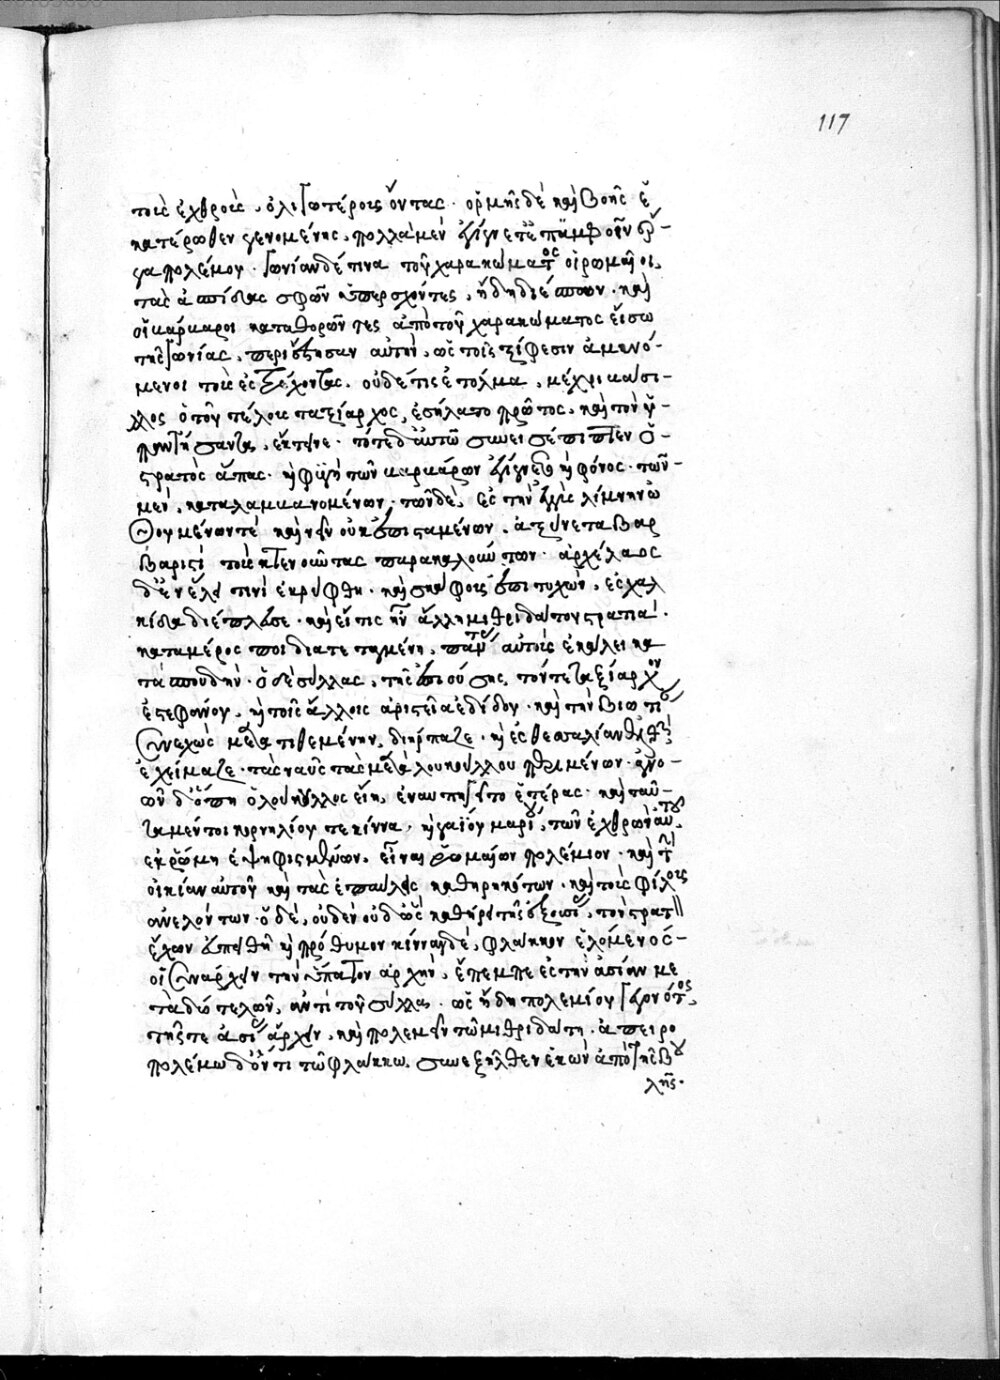 117
τοῖς ἐχθροῖς, ὀλιγωτέροις ὄντας. ὁρμῆς δὲ καὶ βοῆς ἑ
κατέρωθεν γενομένης, πολλὰ μὲν ἐγίγνετο παμφοῖν ἔρ-
γα πολέμου. γωνίαν δέ τινα τοῦ χαρακώματος οἱ ρωμαῖοι,
τὰς ἀσπίδας σφῶν ὑπερσχόντες, ἤδη διέσπων. καὶ
οἱ βάρβαροι καταθορόντες ἀπὸ τοῦ χαρακώματος εἴσω
τῆς γωνίας, περιέστησαν αὐτὴν, ὡς τοῖς ξίφεσιν ἀμυνό-
μενοι τοὺς ἐστρέχοντας. οὐδέ τις ἐτόλμα, μέχρι βάσι-
λλος ὁ τοῦ τέλους ταξίαρχος, ἐσήλατο πρῶτος, καὶ τὸν ὑ-
παντήσαντα, ἔκτεινε. τότε δ' αὐτῶ συνεισέπιπτεν ὁ
στρατὸς ἅπας. καὶ φυγὴ τῶν βαρβάρων ἐγίγνετο καὶ φόνος. τῶν
μὲν, καταλαμβανομένων, τῶν δὲ, ἐς τὴν ἐγγὺς λίμνην ὠ
θουμένων τε καὶ νεῖν οὐκ ἐπισταμένων. ἀξύνετα βαρ
βαριστὶ τοὺς κτενοῦντας παρακαλούντων. ἀρχέλαος
δ' ἐν ἕλει τινὶ ἐκρύφθη. καὶ σκάφους ἐπιτυχὼν, ἐς χαλ
κίδα διέπλευσε. καὶ εἴ τις ἦν ἄλλη μιθριδάτου στρατιὰ
κατὰ μέρος ποι διατεταγμένη, πάντας αὐτοὺς ἐκάλει κα
τὰ σπουδήν. ὁ δὲ σύλλας, τῆς ἐπιούσης, τόν τε ταξίαρχον
ἐστεφάνου, καὶ τοῖς ἄλλοις ἀριστεῖα ἐδίδου. καὶ τὴν βιωτίαν
συνεχῶς μετατιθεμένην, διήρπαζε. καὶ ἐς θεσσαλίαν ἐλθὼν
ἐχείμαζε. τὰς ναῦς τὰς μετὰ λουκούλλου περιμένων. ἀγνο-
ῶν δ' ὅπη ὁ λούκουλλος εἴη, ἐναυπηγεῖτο ἑτέρας. καὶ ταῦ-
τα μέντοι κορνηλίου τε κίννα, καὶ γαΐου μαρίου, τῶν ἐχθρῶν αὐτοῦ,
ἐν ῥώμη ἐψηφισμένων, εἶναι ῥωμαίων πολέμιον. καὶ τὴν
οἰκίαν αὐτοῦ καὶ τὰς ἐπαύλεις καθηρηκότων. καὶ τοὺς φίλους
ἀνελόντων. ὁ δὲ, οὐδὲν οὐδ' ὣς καθήρει τῆς ἐξουσίας, τὸν στρατὸν
ἔχων εὐπειθῆ καὶ πρόθυμον. κίννας δὲ, φλάκκον ἑλόμενός-
οἱ συνάρχειν τὴν ὕπατον ἀρχὴν, ἔπεμπε ἐς τὴν ἀσίαν με
τὰ δύο τελῶν, ἀντὶ τοῦ σύλλα. ὡς ἤδη πολεμίου γεγονότος,
τῆς τε ἀσίας ἄρχειν, καὶ πολεμεῖν τῶ μιθριδάτη. ἀπείρο
πολέμω δ' ὄντι τῶ φλάκκω, συνεξῆλθεν ἑκὼν ἀπὸ τῆς βου
λῆς.